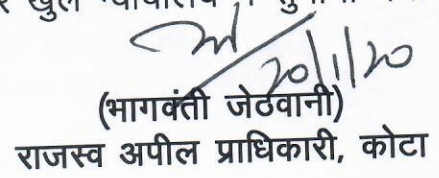 खुले न्यायालय में सुनाया
20/1/20
(भागवंती जेठवानी)
राजस्व अपील प्राधिकारी, कोटा